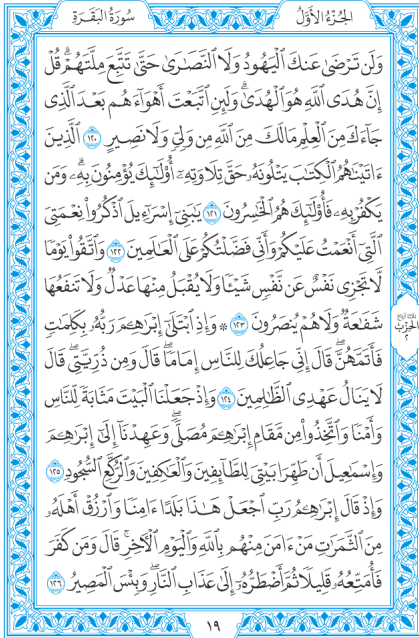 الجُزْءُ الأَوَّلُ سُورَةُ البَقَرَةِ
وَلَن تَرْضَىٰ عَنكَ ٱلْيَهُودُ وَلَا ٱلنَّصَٰرَىٰ حَتَّىٰ تَتَّبِعَ مِلَّتَهُمْ ۗ قُلْ
إِنَّ هُدَى ٱللَّهِ هُوَ ٱلْهُدَىٰ ۗ وَلَئِنِ ٱتَّبَعْتَ أَهْوَآءَهُم بَعْدَ ٱلَّذِى
جَآءَكَ مِنَ ٱلْعِلْمِ ۙ مَا لَكَ مِنَ ٱللَّهِ مِن وَلِىٍّ وَلَا نَصِيرٍ ١٢٠ ٱلَّذِينَ
ءَاتَيْنَٰهُمُ ٱلْكِتَٰبَ يَتْلُونَهُۥ حَقَّ تِلَاوَتِهِۦٓ أُو۟لَٰٓئِكَ يُؤْمِنُونَ بِهِۦ ۗ وَمَن
يَكْفُرْ بِهِۦ فَأُو۟لَٰٓئِكَ هُمُ ٱلْخَٰسِرُونَ ١٢١ يَٰبَنِىٓ إِسْرَٰٓءِيلَ ٱذْكُرُوا۟ نِعْمَتِىَ
ٱلَّتِىٓ أَنْعَمْتُ عَلَيْكُمْ وَأَنِّى فَضَّلْتُكُمْ عَلَى ٱلْعَٰلَمِينَ ١٢٢ وَٱتَّقُوا۟ يَوْمًا
لَّا تَجْزِى نَفْسٌ عَن نَّفْسٍ شَيْـًٔا وَلَا يُقْبَلُ مِنْهَا عَدْلٌ وَلَا تَنفَعُهَا
شَفَٰعَةٌ وَلَا هُمْ يُنصَرُونَ ١٢٣ ۞ وَإِذِ ٱبْتَلَىٰٓ إِبْرَٰهِۦمَ رَبُّهُۥ بِكَلِمَٰتٍ
فَأَتَمَّهُنَّ ۖ قَالَ إِنِّى جَاعِلُكَ لِلنَّاسِ إِمَامًا ۖ قَالَ وَمِن ذُرِّيَّتِى ۖ قَالَ
لَا يَنَالُ عَهْدِى ٱلظَّٰلِمِينَ ١٢٤ وَإِذْ جَعَلْنَا ٱلْبَيْتَ مَثَابَةً لِّلنَّاسِ
وَأَمْنًا وَٱتَّخِذُوا۟ مِن مَّقَامِ إِبْرَٰهِۦمَ مُصَلًّى ۖ وَعَهِدْنَآ إِلَىٰٓ إِبْرَٰهِۦمَ
وَإِسْمَٰعِيلَ أَن طَهِّرَا بَيْتِىَ لِلطَّآئِفِينَ وَٱلْعَٰكِفِينَ وَٱلرُّكَّعِ ٱلسُّجُودِ ١٢٥
وَإِذْ قَالَ إِبْرَٰهِۦمُ رَبِّ ٱجْعَلْ هَٰذَا بَلَدًا ءَامِنًا وَٱرْزُقْ أَهْلَهُۥ
مِنَ ٱلثَّمَرَٰتِ مَنْ ءَامَنَ مِنْهُم بِٱللَّهِ وَٱلْيَوْمِ ٱلْءَاخِرِ ۖ قَالَ وَمَن كَفَرَ
فَأُمَتِّعُهُۥ قَلِيلًا ثُمَّ أَضْطَرُّهُۥٓ إِلَىٰ عَذَابِ ٱلنَّارِ ۖ وَبِئْسَ ٱلْمَصِيرُ ١٢٦
ثلاثة أرباع
الحزب
٢
١٩